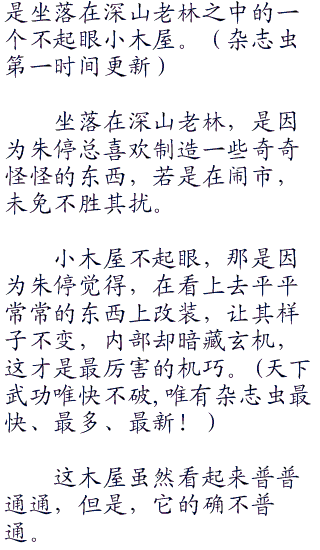 是坐落在深山老林之中的一
个不起眼小木屋。（杂志虫
第一时间更新）
坐落在深山老林，是因
为朱停总喜欢制造一些奇奇
怪怪的东西，若是在闹市，
未免不胜其扰。
小木屋不起眼，那是因
为朱停觉得，在看上去平平
常常的东西上改装，让其样
子不变，内部却暗藏玄机，
这才是最厉害的机巧。(天下
武功唯快不破,唯有杂志虫最
快、最多、最新！)
这木屋虽然看起来普普
通通，但是，它的确不普
通。